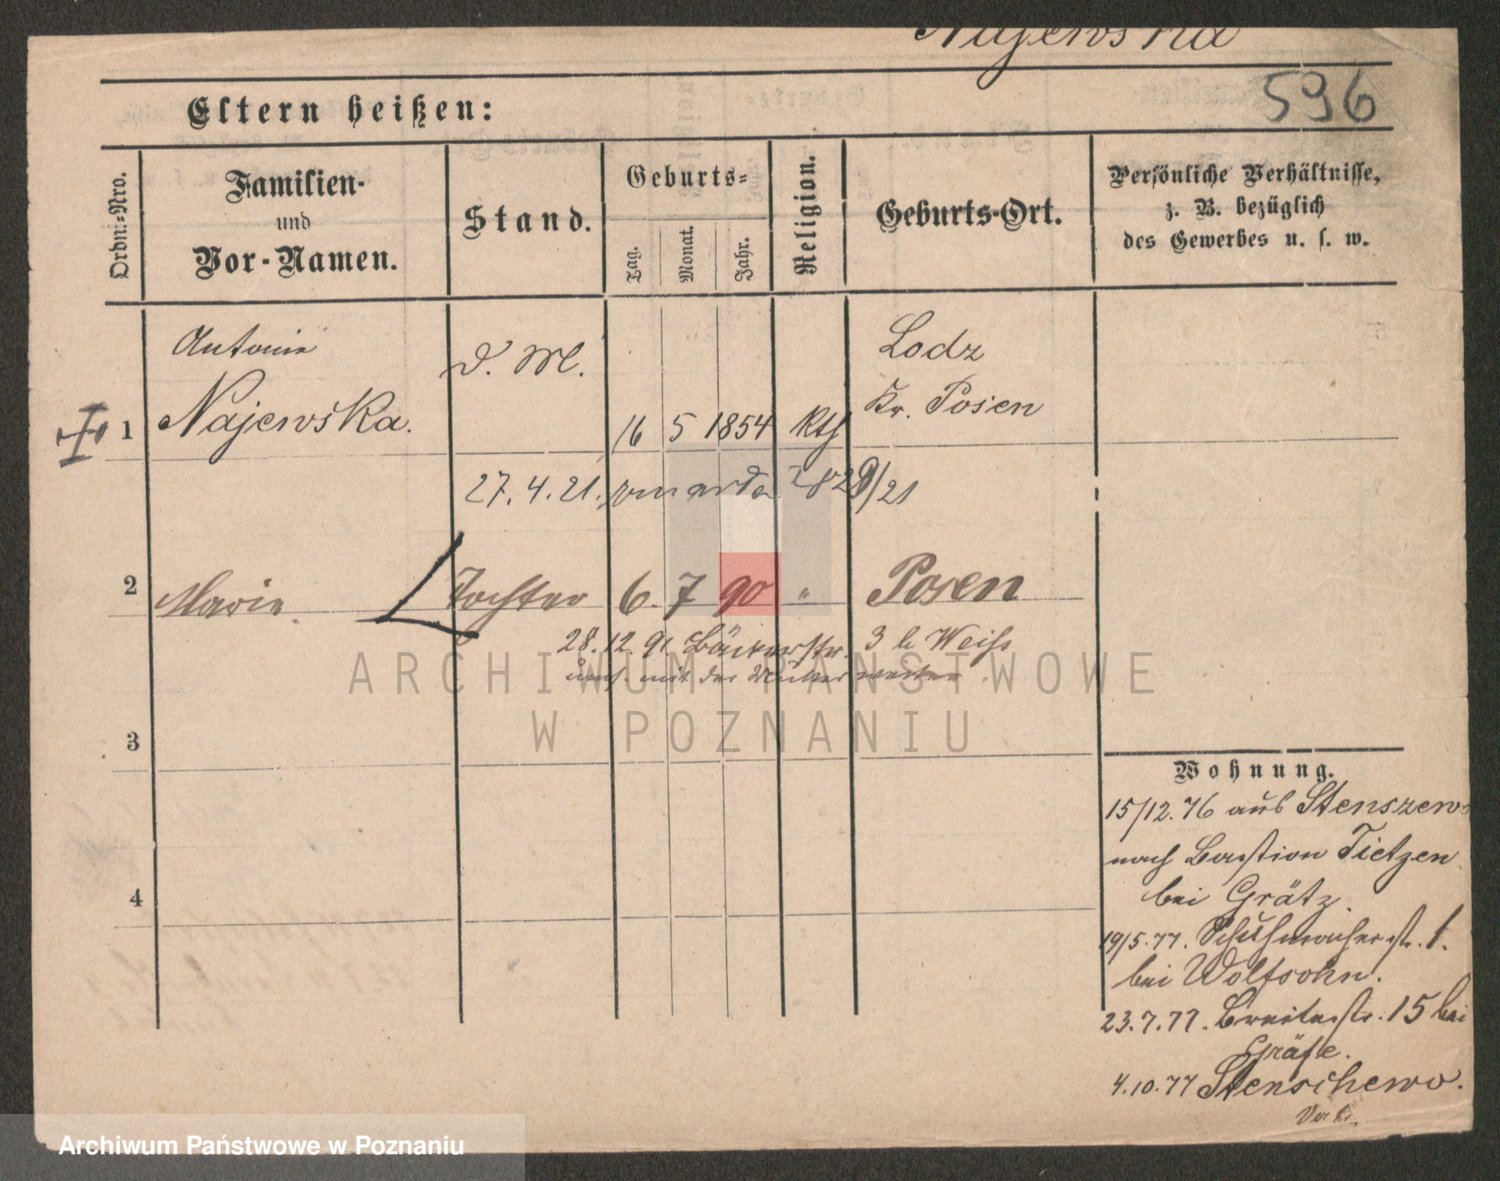 Najewska
596
Eltern heißen:
Ordn:=Nro.
Familien-
und
Vor-Namen.
Stand.
Geburts=
Tag.
Monat.
Jahr.
Religion.
Geburts-Ort.
Persönliche Verhältnisse,
z. B. bezüglich
des Gewerbes u. s. w.
Antonie
Najewska.
D. M.
Lodz
Kr. Posen
1
16 5 1854 Kth
27.4.21. zmarła 2828/21
2
Marie. Tochter 6. 7 90 " Posen
28.12.91 Bäckerstr. 3 b Weiss
mit der Mutter weiter
ARCHIWUM PAŃSTWOWE
W POZNANIU
3
4
Wohnung.
15/12.76 aus Stenszewo
nach Bastion Tietzen
bei Grätz.
19/5.77. Schuhmacherstr. 1.
bei Wolfsohn.
23.7.77. Breitestr. 15 bei
Gräfe.
4.10.77 Stenschewo.
Archiwum Państwowe w Poznaniu